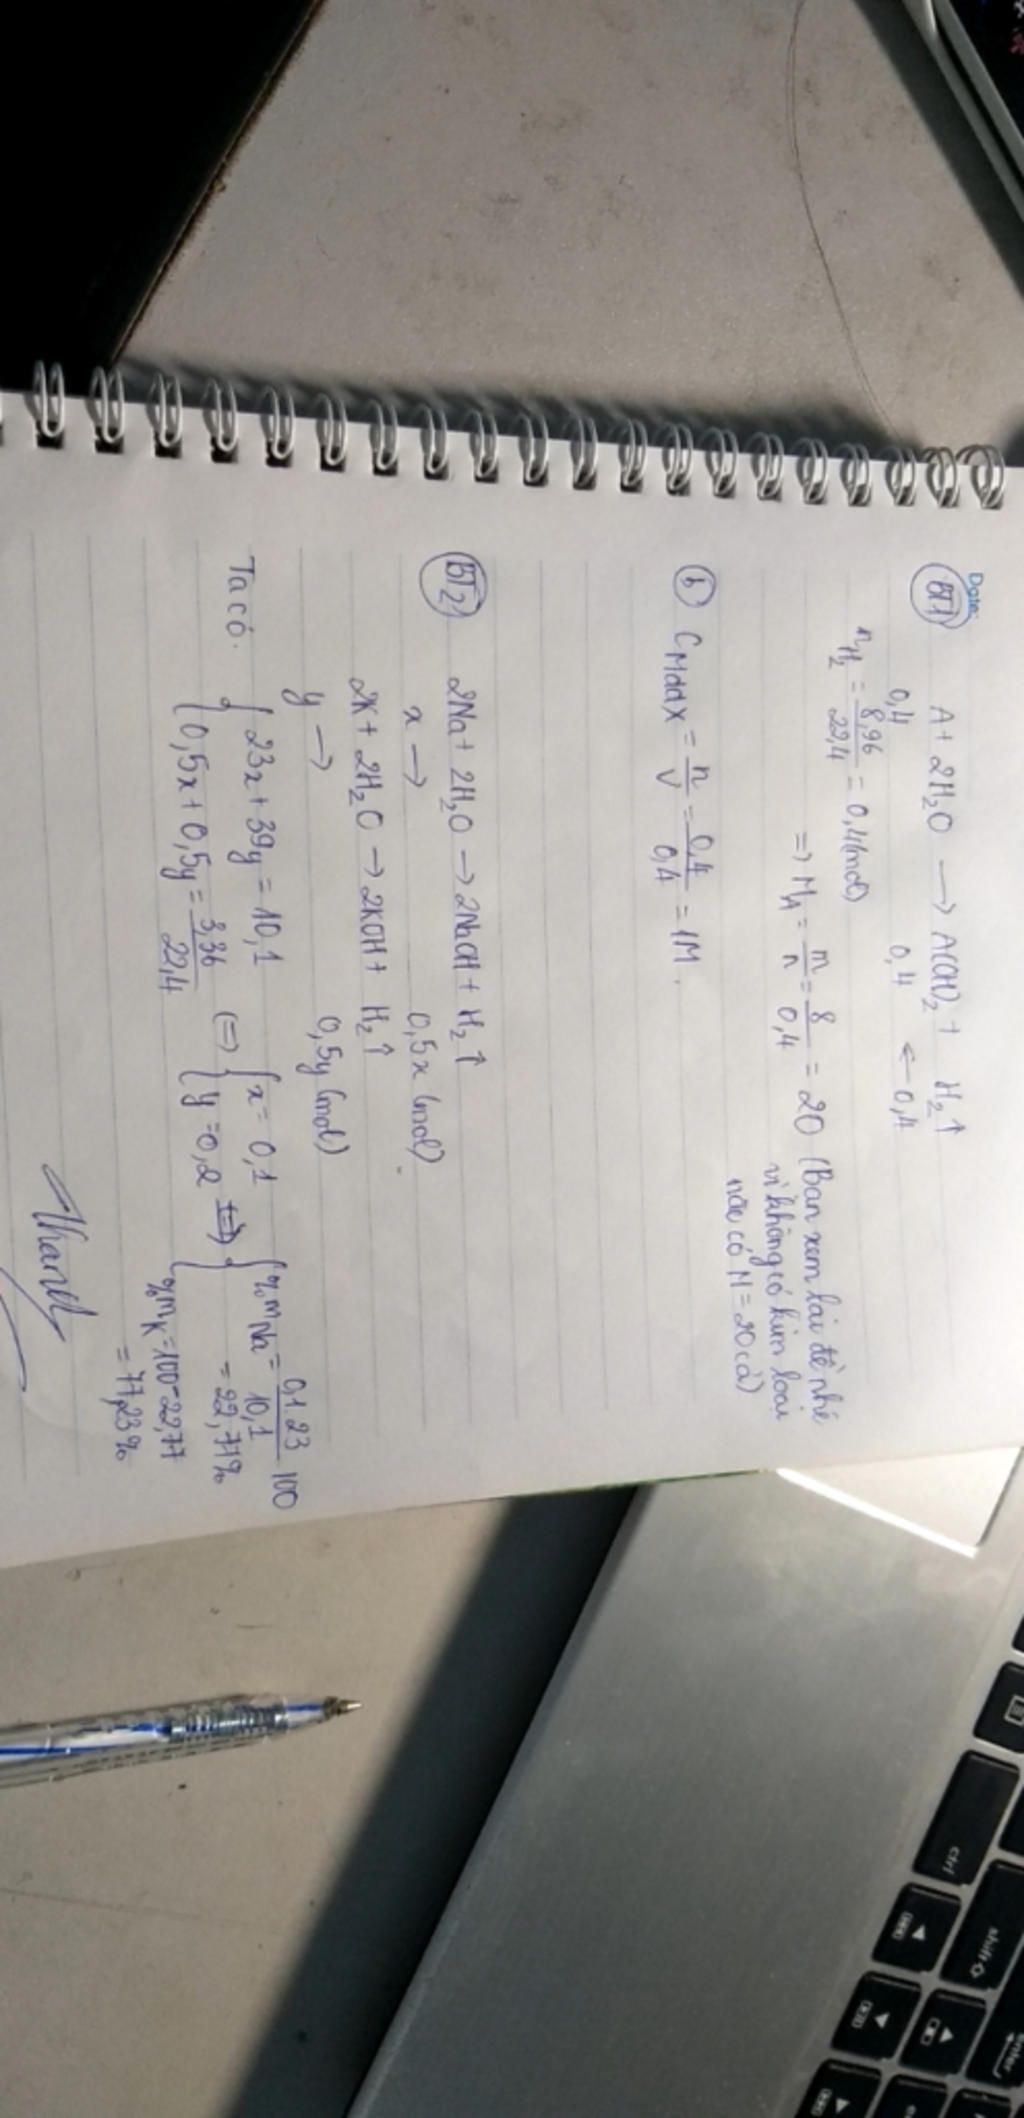 Date:
BT1 A + 2H₂O → A(OH)₂ + H₂↑
0,4 0,4 ← 0,4
nH₂ = 8,96/22,4 = 0,4 (mol)
=> M_A = m/n = 8/0,4 = 20 (Bạn xem lại đề nhé
vì không có kim loại
nào có M = 20 cả)
b) CM ddX = n/V = 0,4/0,4 = 1M.
BT2) 2Na + 2H₂O → 2NaOH + H₂↑
x → 0,5x (mol).
2K + 2H₂O → 2KOH + H₂↑
y → 0,5y (mol)
Ta có: { 23x + 39y = 10,1
{ 0,5x + 0,5y = 3,36/22,4 (=) { x = 0,1
{ y = 0,2 (=) { %mNa = 0,1.23/10,1 .100
= 22,77%
%mK = 100-22,77
= 77,23%
ctrl
shift
enter